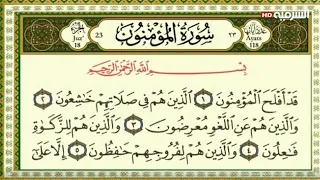 الشرقية HD
الجزء Juz' 18 23 سُورَةُ الْمُؤْمِنُونَ ٢٣ آياتها Ayats 118
بِسْمِ اللَّهِ الرَّحْمَٰنِ الرَّحِيمِ
قَدْ أَفْلَحَ الْمُؤْمِنُونَ ١ الَّذِينَ هُمْ فِي صَلَاتِهِمْ خَاشِعُونَ ٢
وَالَّذِينَ هُمْ عَنِ اللَّغْوِ مُعْرِضُونَ ٣ وَالَّذِينَ هُمْ لِلزَّكَاةِ
فَاعِلُونَ ٤ وَالَّذِينَ هُمْ لِفُرُوجِهِمْ حَافِظُونَ ٥ إِلَّا عَلَىٰ